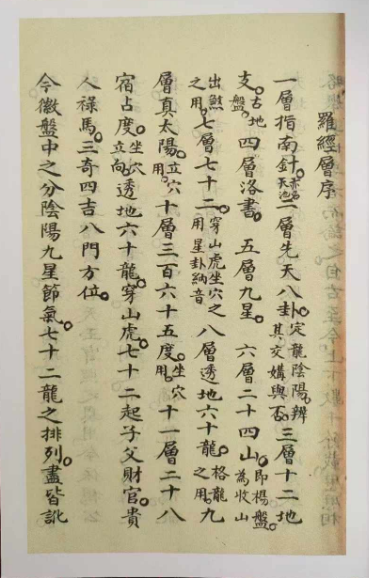 羅經層序
一層指南針。亦名天池二層先天八卦。定龍陰陽。辨其交媾與否。三層十二地
支。古地盤。四層洛書。五層九星。六層二十四山。即楊盤。為收山
出煞之用。七層七十二。穿山虎坐穴之用星卦納音八層透地六十龍。格龍之用。九
層真太陽。立穴用。十層三百六十五度。坐穴用。十一層二十八
宿占度。坐穴立向。透地六十龍。穿山虎。七十二起子父財官貴
人祿馬。三奇四吉八門方位。
今徽盤中之分陰陽九星節氣。七十二龍之排列。盡皆訛